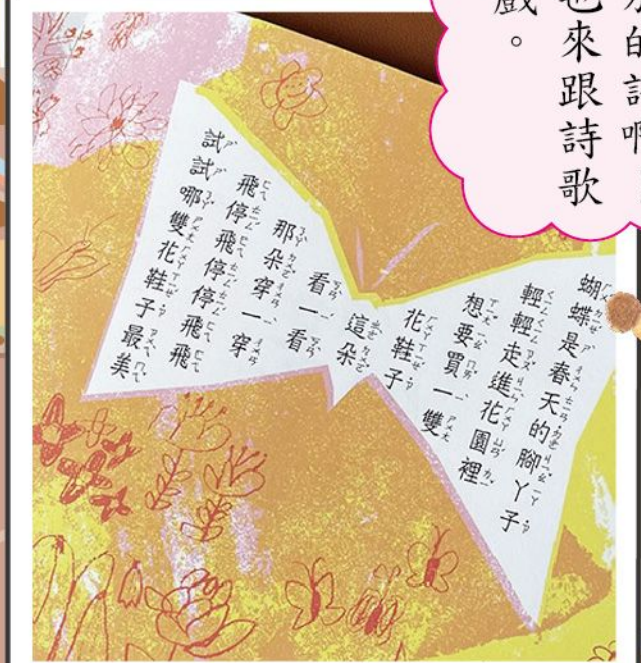 也來跟詩歌
戲。
蝴蝶是春天的腳丫子
輕輕走進花園裡
想要買一雙
花鞋子
這朵
看一看
那朵穿一穿
飛停飛停停飛飛
試試哪雙花鞋子最美